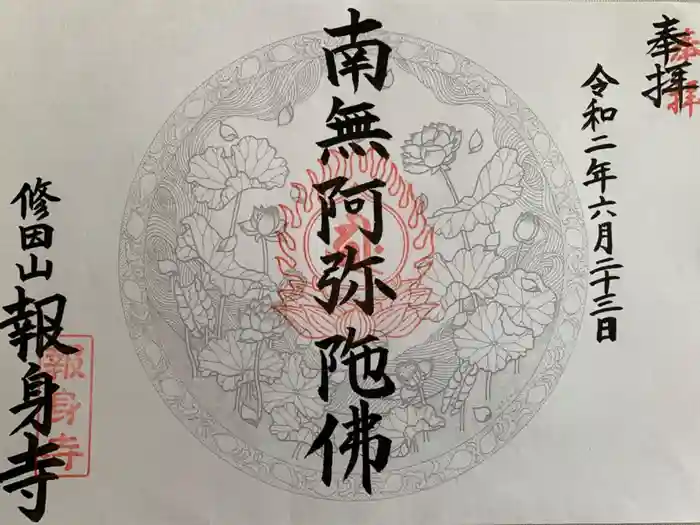 奉拝
奉拝
令和二年六月二十三日
南無阿弥陁佛
修田山
報身寺
報身寺